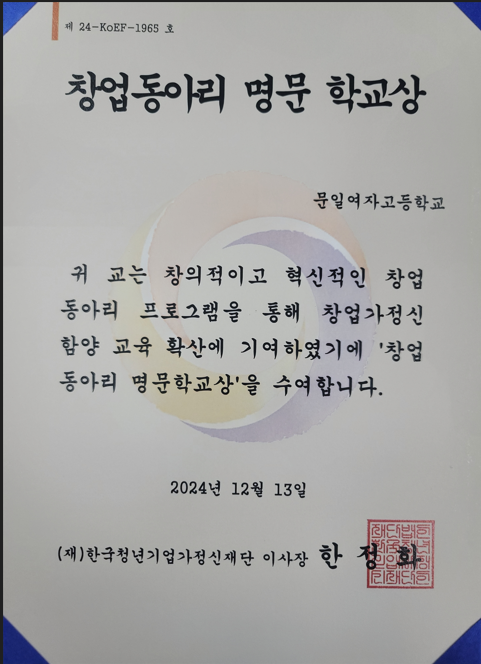 제 24-KoEF-1965 호
창업동아리 명문 학교상
문일여자고등학교
귀 교는 창의적이고 혁신적인 창업
동아리 프로그램을 통해 창업가정신
함양 교육 확산에 기여하였기에 '창업
동아리 명문학교상'을 수여합니다.
2024년 12월 13일
(재)한국청년기업가정신재단 이사장 한 정 화